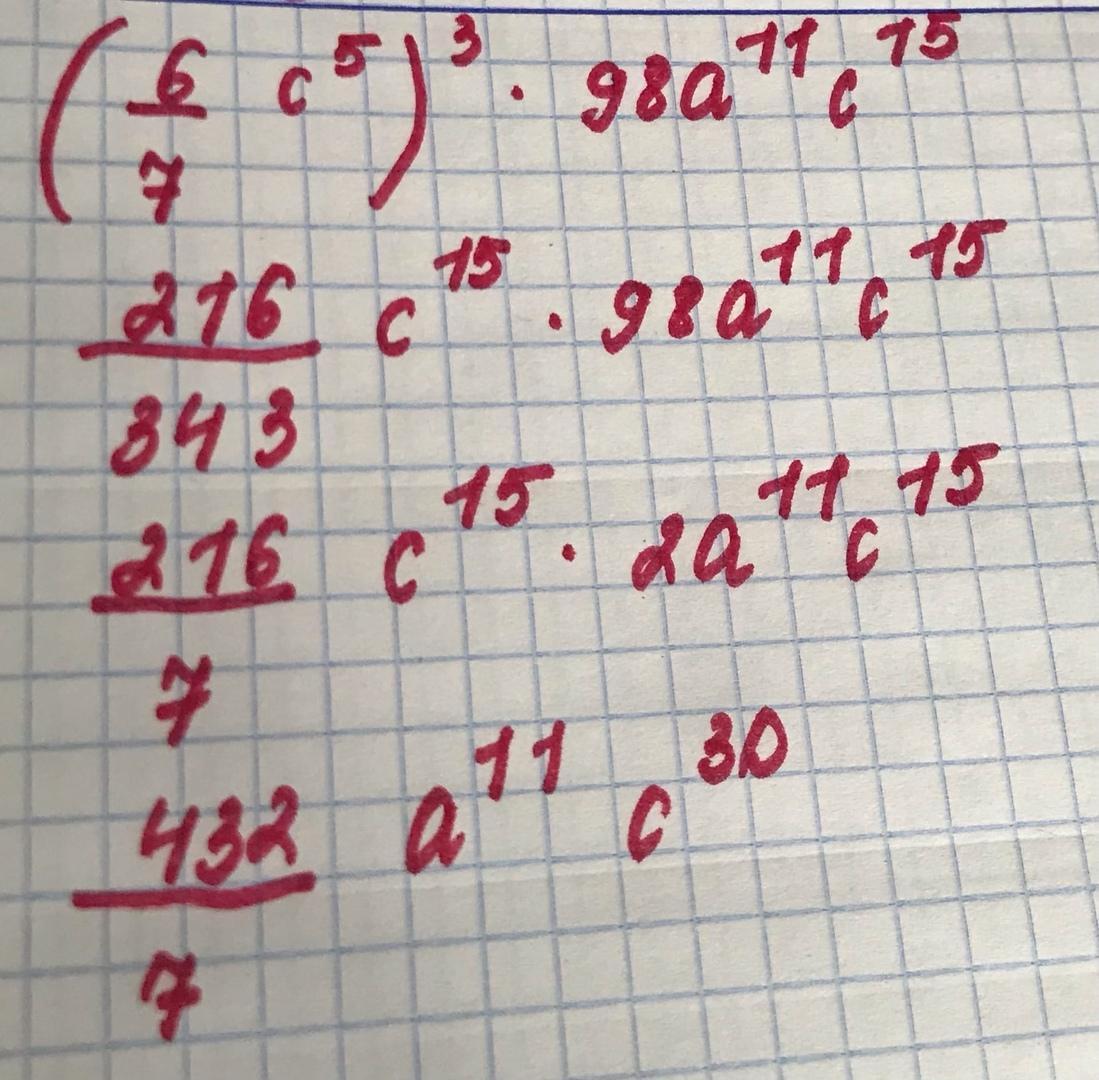 (6/7 c⁵)³ · 98a¹¹c¹⁵
216/343 c¹⁵ · 98a¹¹c¹⁵
216/7 c¹⁵ · 2a¹¹c¹⁵
432/7 a¹¹ c³⁰